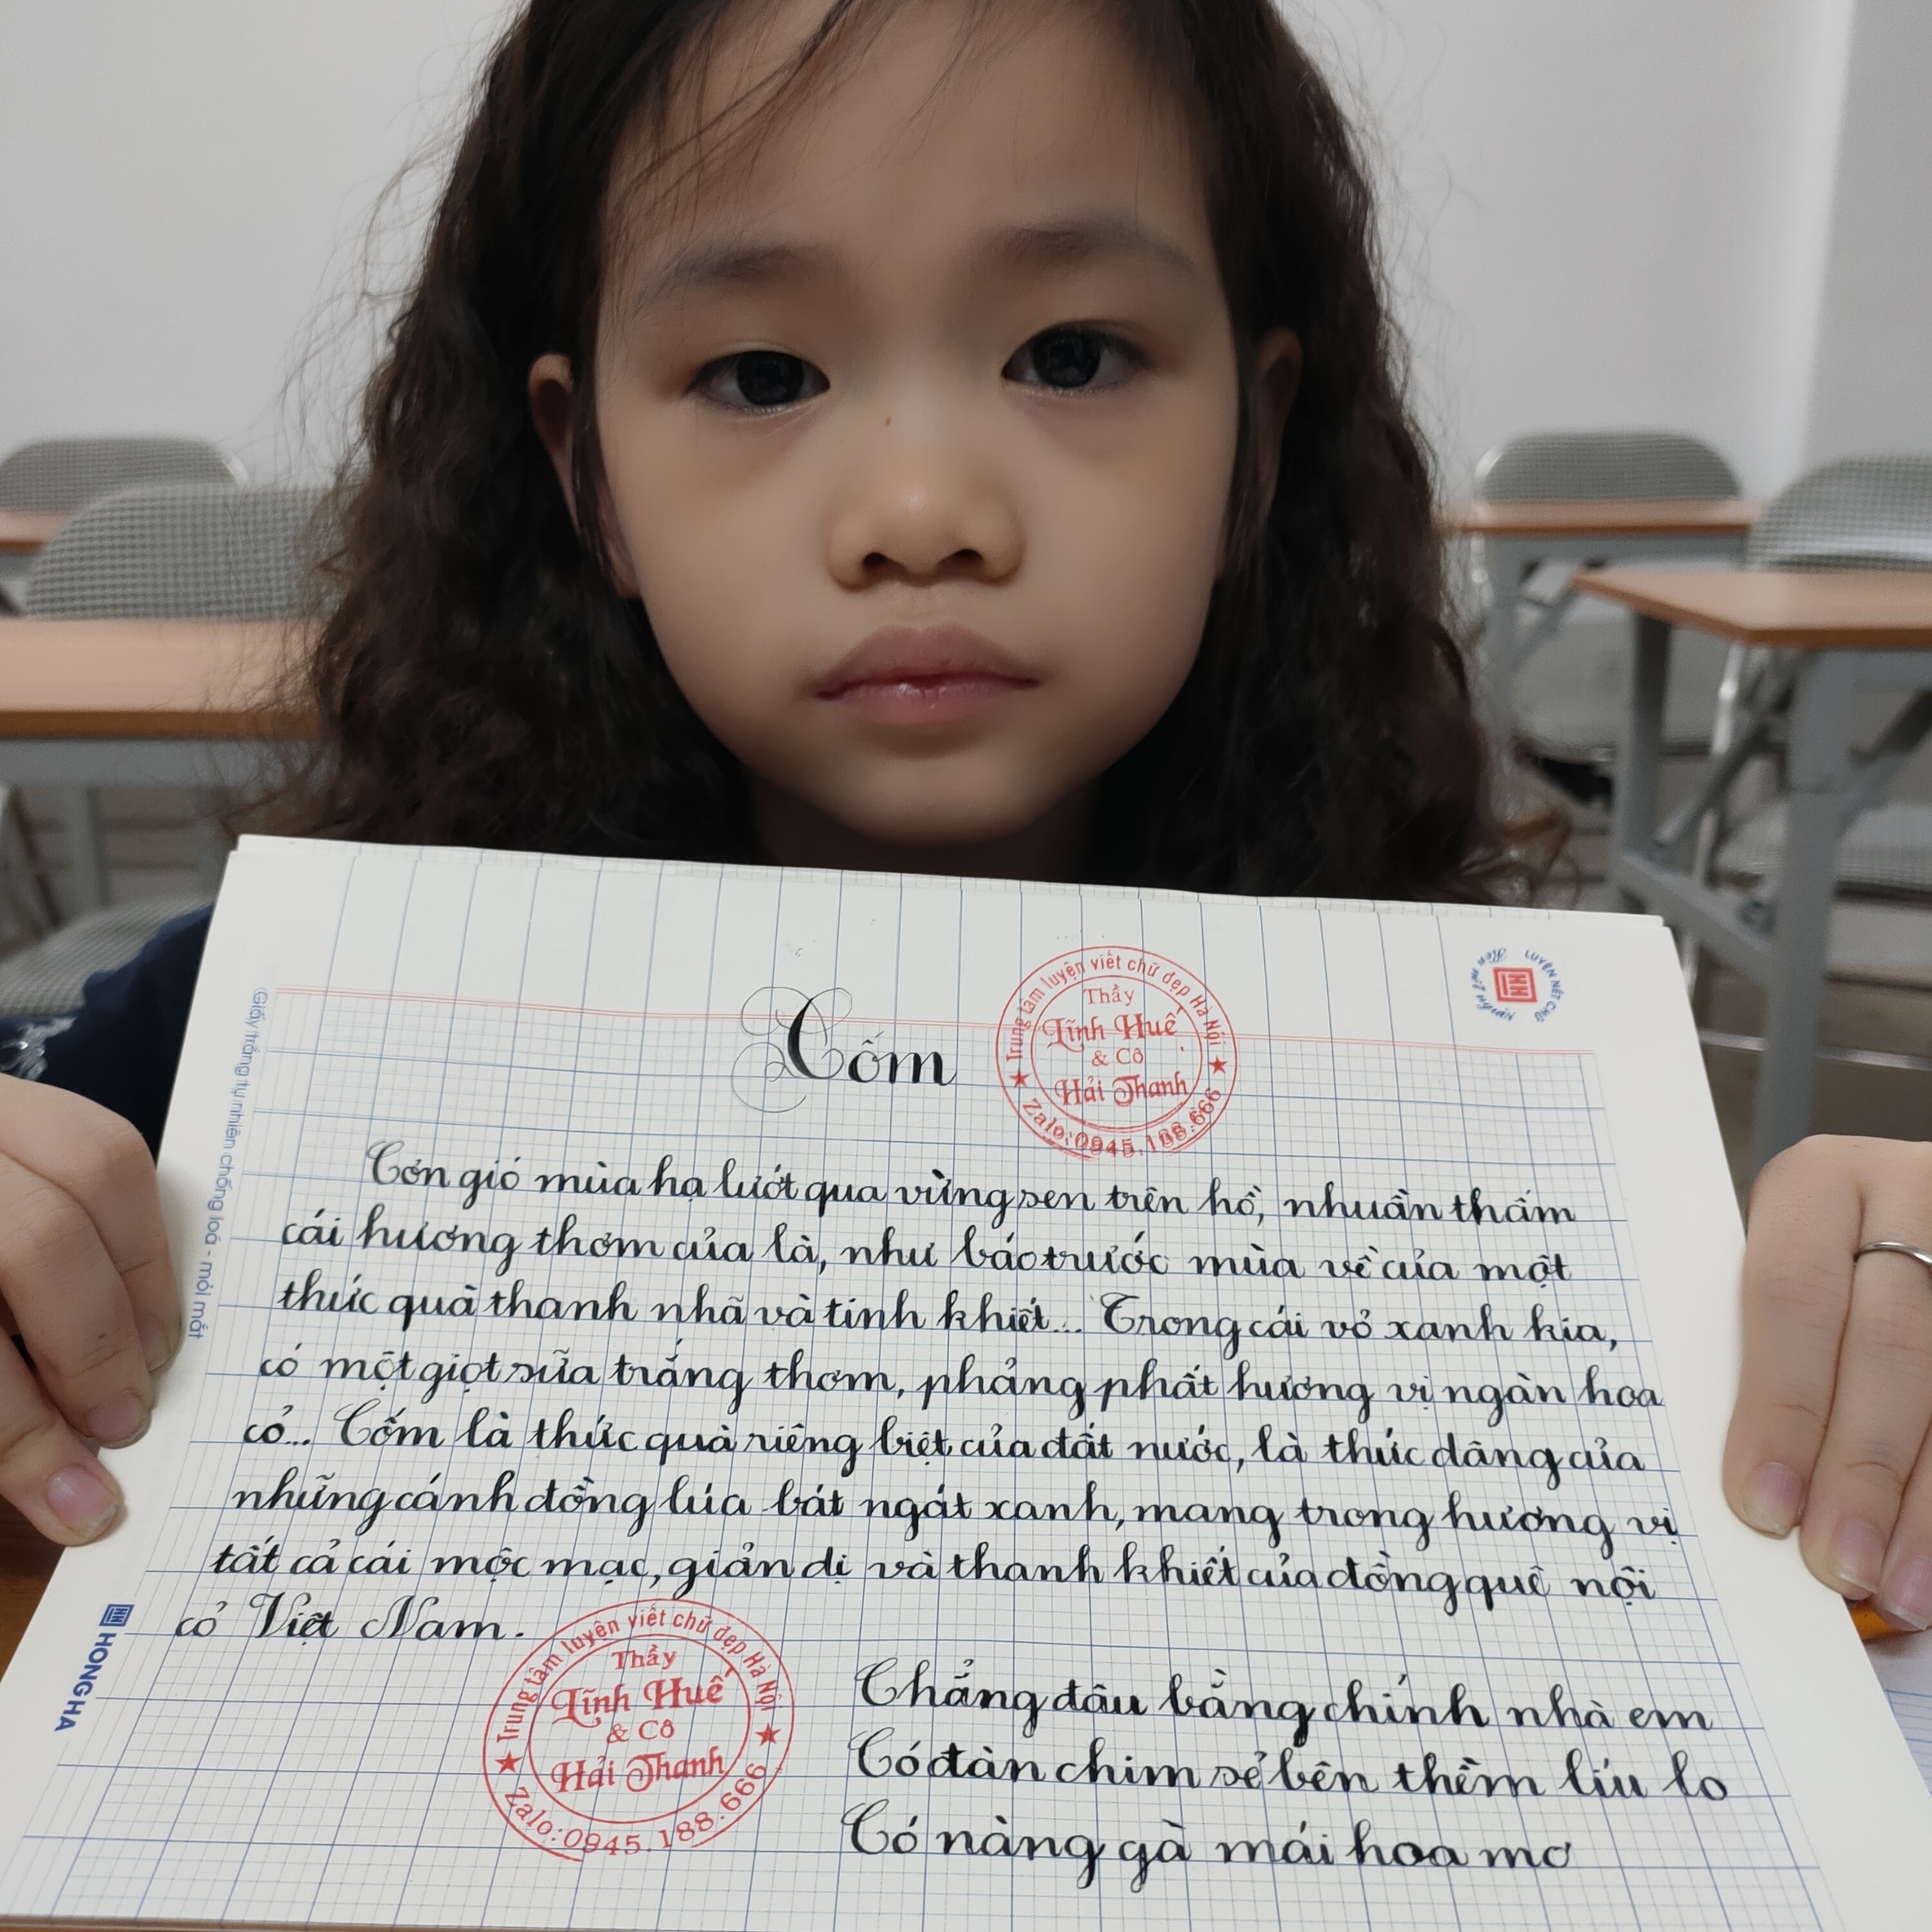 Cốm
Trung tâm luyện viết chữ đẹp Hà Nội
Thầy
Lĩnh Huế
& Cô
Hải Thanh
Zalo:0945.188.666
LUYỆN NÉT CHỮ
Rèn nết người
Giấy trắng tự nhiên chống loá - mỏi mắt
Cơn gió mùa hạ lướt qua vừng sen trên hồ, nhuần thấm
cái hương thơm của lá, như báo trước mùa về của một
thức quà thanh nhã và tinh khiết... Trong cái vỏ xanh kia,
có một giọt sữa trắng thơm, phảng phất hương vị ngàn hoa
cỏ... Cốm là thức quà riêng biệt của đất nước, là thức dâng của
những cánh đồng lúa bát ngát xanh, mang trong hương vị
tất cả cái mộc mạc, giản dị và thanh khiết của đồng quê nội
cỏ Việt Nam.
HONG HA
Trung tâm luyện viết chữ đẹp Hà Nội
Thầy
Lĩnh Huế
& Cô
Hải Thanh
Zalo:0945.188.666
Chẳng đâu bằng chính nhà em
Có đàn chim sẻ bên thềm líu lo
Có nàng gà mái hoa mơ